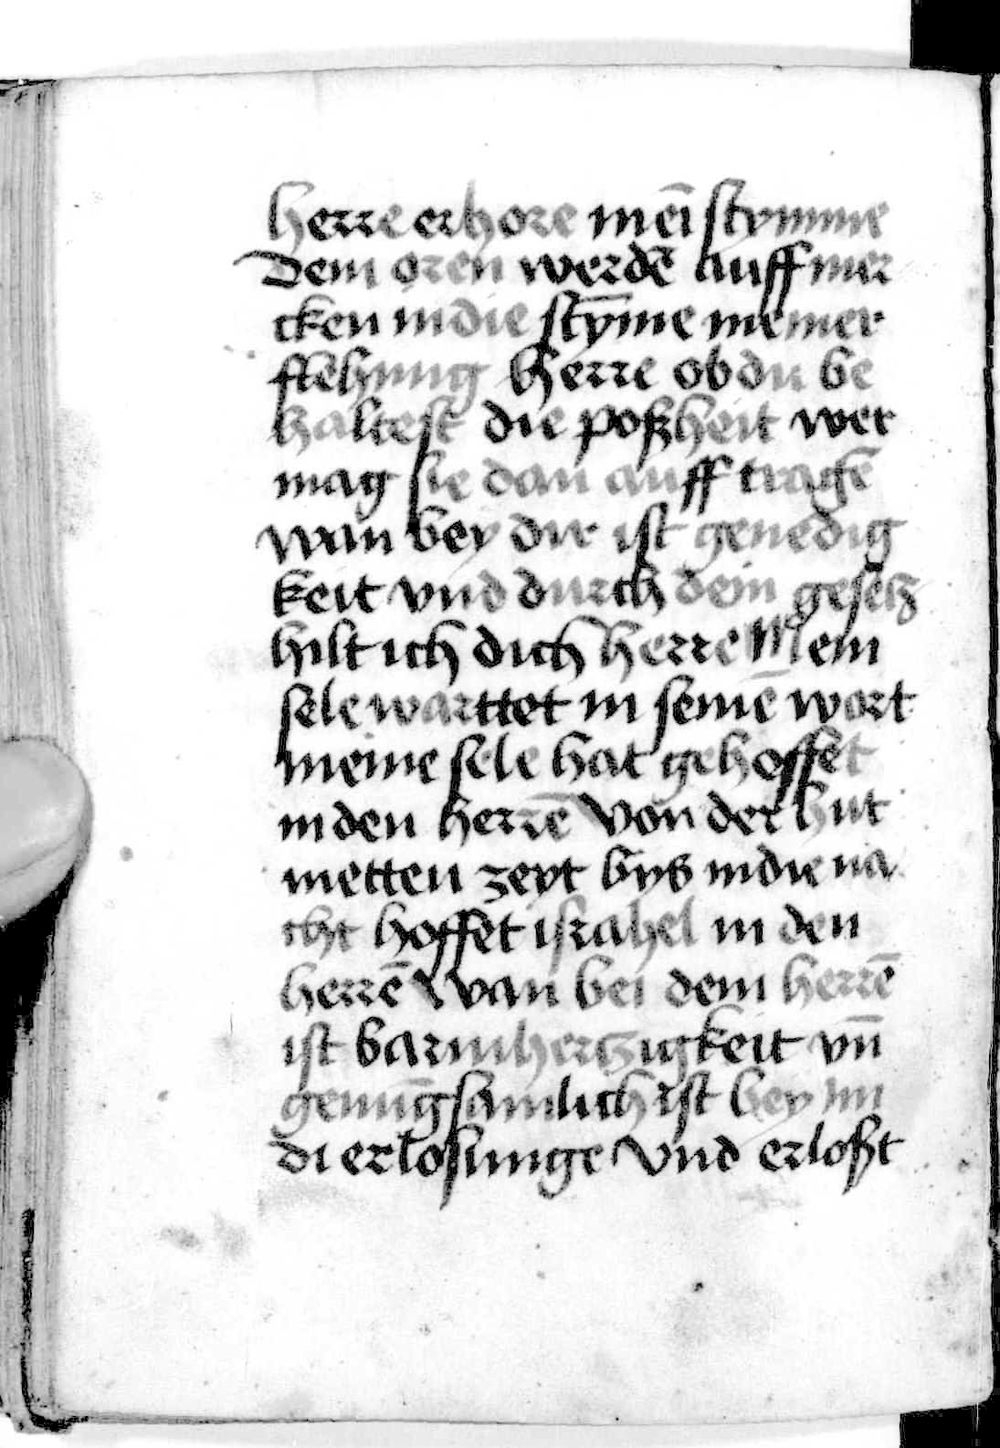 herre erhore mei͞ stymme
Dein oren werde͞ auff mer
cken in die sty͞me meiner
flehung Herre ob du be
haltest die poßheit wer
mag sie dan auff trage͞
wan bey dir ist genedig
keit vnd durch dein gesetz
hilt ich dich herre Mein
sele warttet in seine͞ wort
meine sele hat gehoffet
in den herre͞ Von der hut
metten zeyt bys in die na
cht hoffet israhel in den
herre͞ Wan bei dem herre͞
ist barmhertzigkeit vn͞
genu͞gsamlich ist bey im
di erlosunge Vnd erloßt